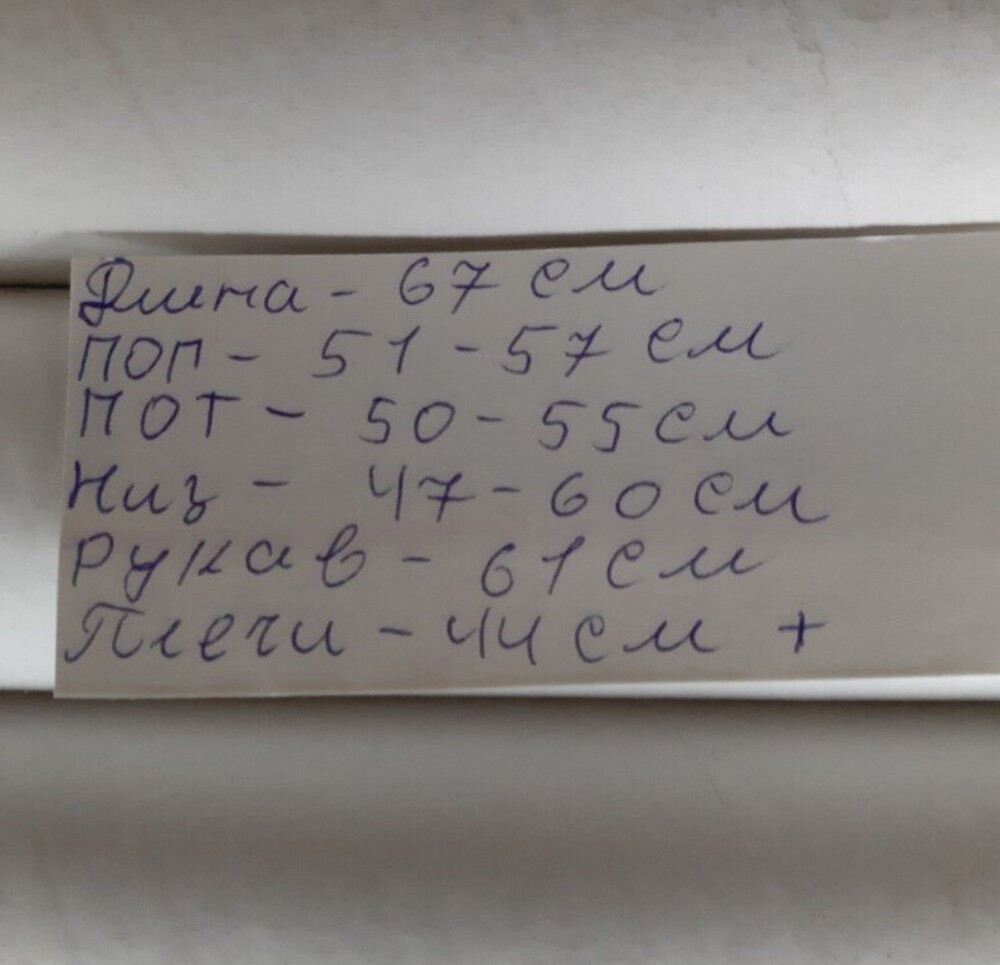 Длина - 67 см
ПОП - 51 - 57 см
ПОТ - 50 - 55 см
Низ - 47 - 60 см
Рукав - 61 см
Плечи - 44 см +